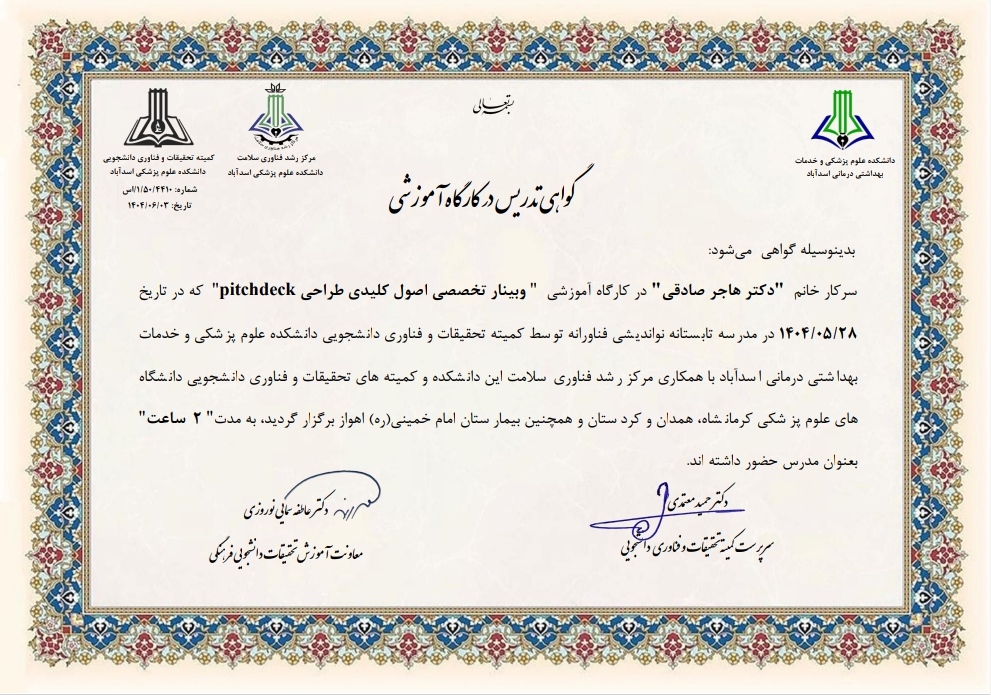 بسمه تعالی
دانشکده علوم پزشکی و خدمات
بهداشتی درمانی اسدآباد
مرکز رشد فناوری سلامت
دانشکده علوم پزشکی اسدآباد
کمیته تحقیقات و فناوری دانشجویی
دانشکده علوم پزشکی اسدآباد
شماره: ۱/۵۰/۴۴۱۰/اس
تاریخ: ۱۴۰۴/۰۶/۰۳
گواهی تدریس در کارگاه آموزشی
بدینوسیله گواهی می‌شود:
سرکار خانم "دکتر هاجر صادقی" در کارگاه آموزشی " وبینار تخصصی اصول کلیدی طراحی pitchdeck" که در تاریخ
۱۴۰۴/۰۵/۲۸ در مدرسه تابستانه نواندیشی فناورانه توسط کمیته تحقیقات و فناوری دانشجویی دانشکده علوم پزشکی و خدمات
بهداشتی درمانی اسدآباد با همکاری مرکز رشد فناوری سلامت این دانشکده و کمیته های تحقیقات و فناوری دانشجویی دانشگاه
های علوم پزشکی کرمانشاه، همدان و کردستان و همچنین بیمارستان امام خمینی(ره) اهواز برگزار گردید، به مدت" ۲ ساعت"
بعنوان مدرس حضور داشته اند.
دکتر حمید معتمدی
سرپرست کمیته تحقیقات و فناوری دانشجویی
دکتر عاطفه سمایی نوروزی
معاونت آموزش تحقیقات دانشجویی فرهنگی